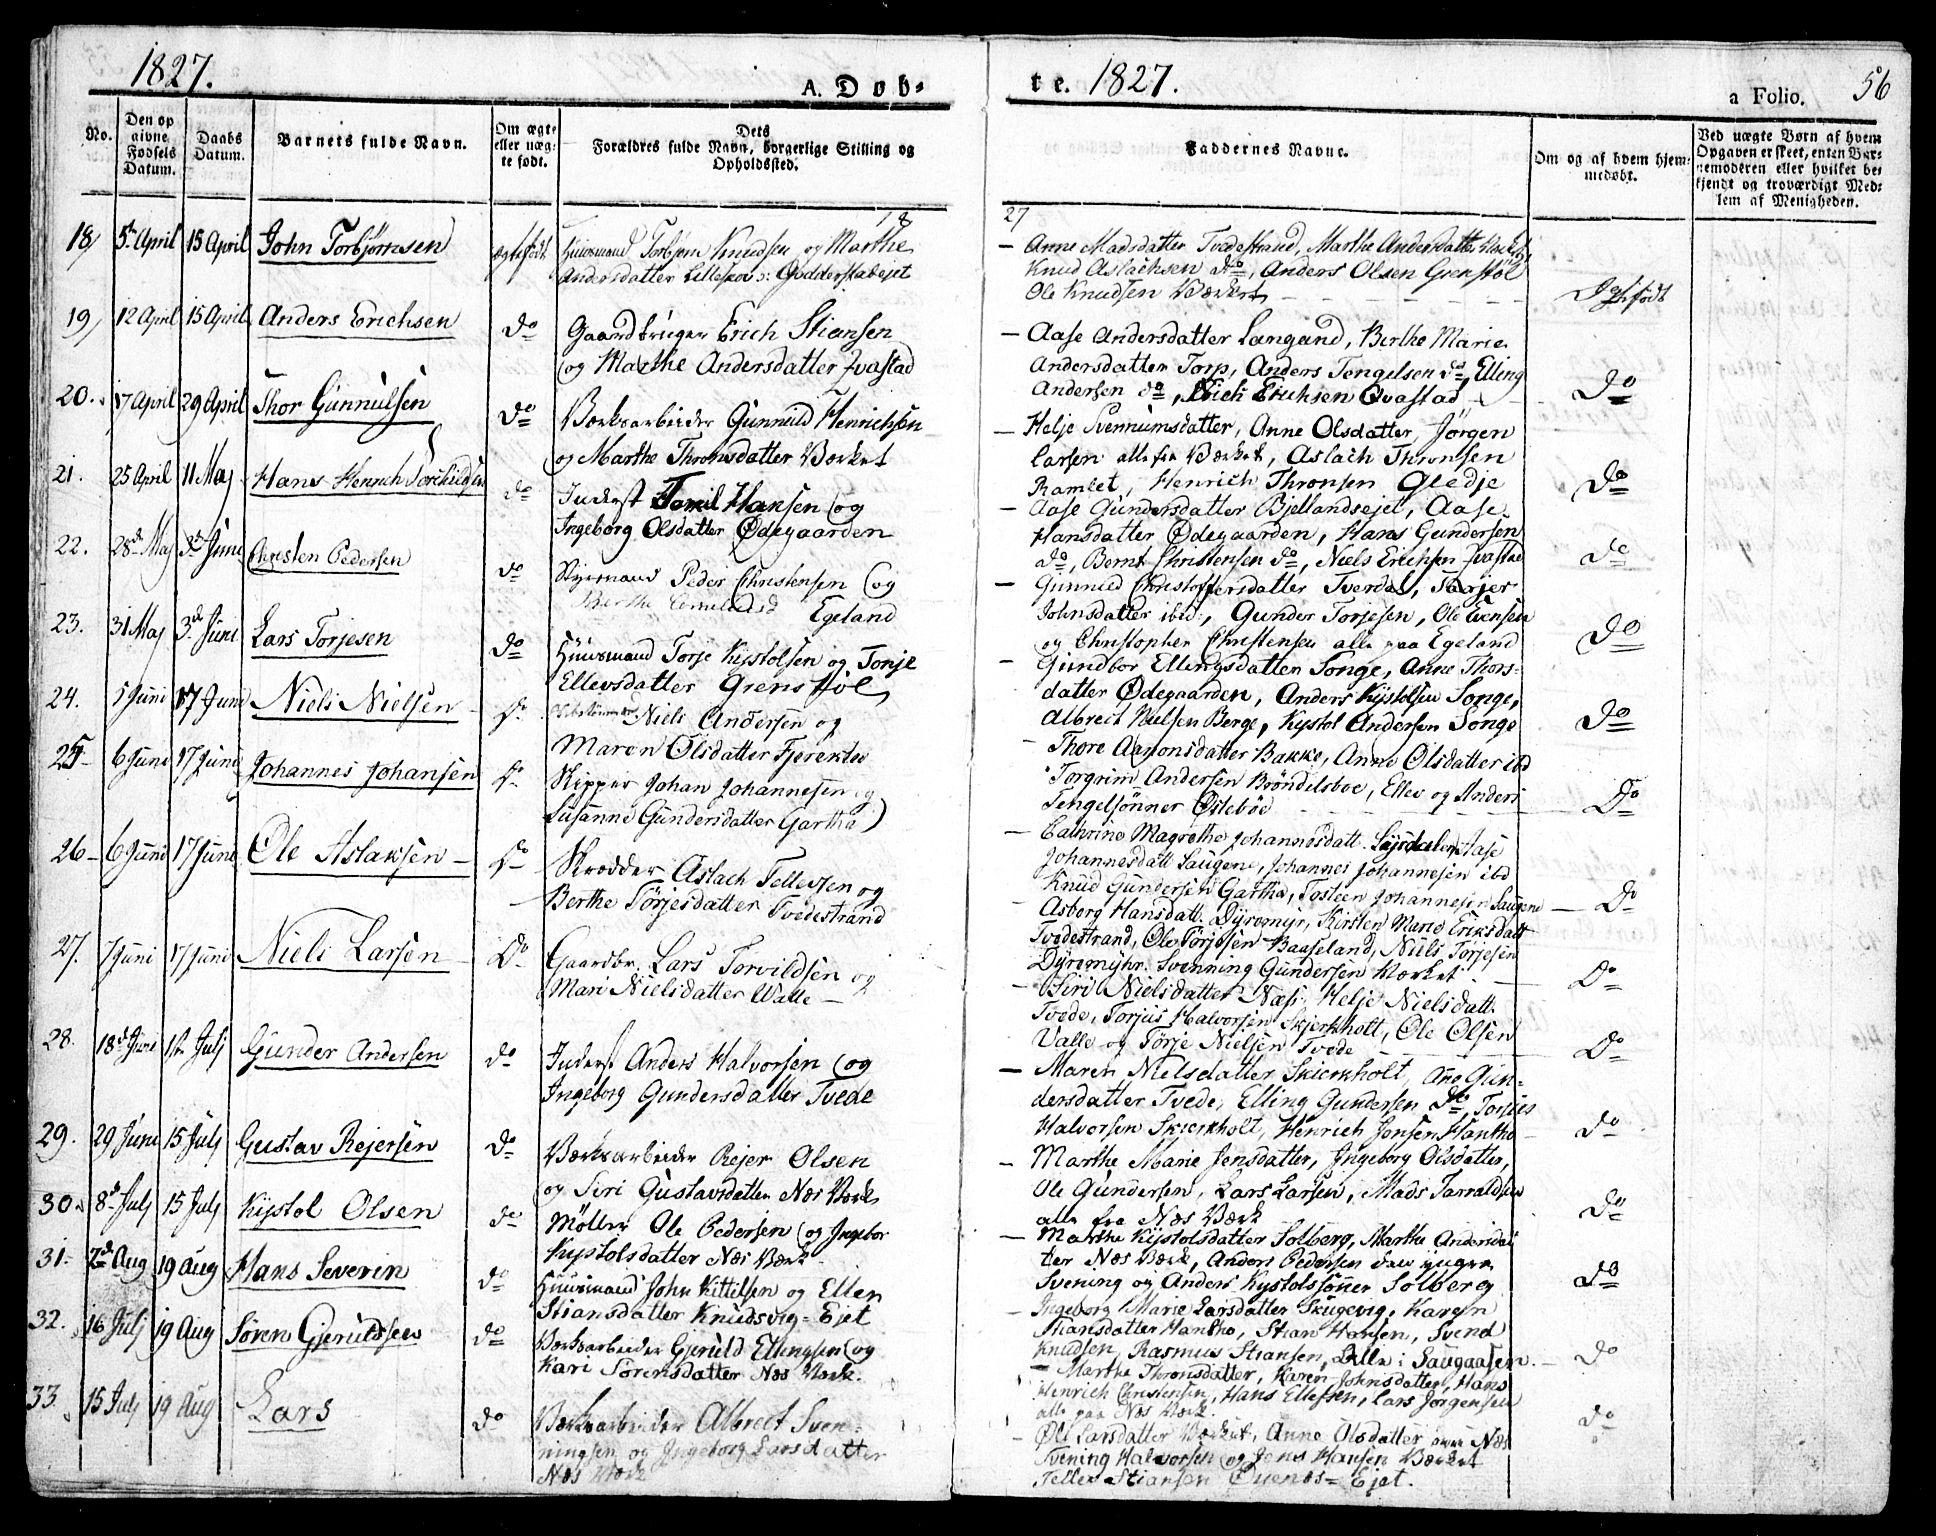 1827.
A. Døb-
No.
Den op
givne
Fødsels
Datum.
Daabs
Datum.
Barnets fulde Navn.
Om ægte
eller uæg-
te født.
Dets
Forældres fulde Navn, borgerlige Stilling og
Opholdssted.
18
18/ 5te April 15 April John Torbjørnsen ægtefødt Huusmand Torbjørn Knudsen og Marthe
Andersdatter Lilleskov
19/ 12 April 15 April Anders Erichsen do Gaardbruger Erich Stiansen
og Marthe Andersdatter Qvastad
20. 17 April 29 April Thor Gunnulsen do Værksarbeider Gunnuld Henrichsen
og Marthe Thronsdatter Værket
21. 25 April 11 Maj Hans Henrich do Inderst Hansen og
Ingeborg Olsdatter Ødegaarden
22. 28de Maj 3de Juni Christen Pedersen do Peder Christensen og
Berthe Egeland
23. 31 Maj 3de Juni Lars Torjesen do Huusmand Torje Kystolsen og Tonje
Ellevsdatter Grenstøl
24. 5 Juni 17 Juni Niels Nielsen Do Niels Andersen og
Maren Olsdatter
25 6 Juni 17 Juni Johannes Johansen Do Skipper Johan Johannesen og
Susanne Gundersdatter Gartha
26 6 Juni 17 Juni Ole Aslaksen Do Skrædder Aslach Tellevsen og
Berthe Tørjesdatter Tvedestrand
27. 7 Juni 17 Juni Niels Larsen Do Gaardbr. Lars Torvildsen og
Mari Nielsdatter Walle
28. 18de Juni 1ste Julj Gunder Andersen do Inderst Anders Halvorsen og
Ingeborg Gundersdatter Tvede
29. 29 Juni 15 Julj Gustav Rejersen do Værksarbeider Rejer Olsen
og Siri Gustavsdatter Næs Værk
30. 8de Julj 15 Julj Kystol Olsen do Møller Ole Pedersen og Ingebor
Kystolsdatter Næs Værk
31. 2de Aug 19 Aug Hans Severin do Huusmand John Kittilsen og Ellen
Stiansdatter Knudsvig-Ejet
32. 16 Julj 19 Aug Søren Gjeruldsen do Værksarbeider Gjeruld Ellingsen og
Kari Sørensdatter Næs Værk.
33. 15 Julj 19 Aug Lars do Værksarbeider Albrect Sven-
ningsen og Ingeborg Larsdatter
Næs Værk
te. 1827.
a Folio. 56
Faddernes Navne.
Om og af hvem hjem-
medøbt.
Ved uægte Børn af hvem
Opgaven er skeet, enten Bar-
nemoderen eller hvilket be-
kjendt og troværdigt Med-
lem af Menigheden.
27
Anne Madsdatter Tvedestrand, Marthe Andersdatter
Knud Aslachsen do, Anders Olsen Grenstøl
Ole Knudsen Værket
Aase Andersdatter Langand, Berthe Marie
Andersdatter Torp, Anders Tengelsen do, Elling
Andersen do, Erich Erichsen Qvastad Do
Helje Svenniumsdatter, Anne Olsdatter, Jörgen
Larsen alle fra Værket, Aslach Thronsen
Ramlet, Henrich Thronsen Gledje Do
Aase Gundersdatter Bjellandsejet, Aase
Hansdatter Ødegaarden, Hans Gundersen
do, Bernt Christensen do, Niels Erichsen Qvastad Do
Gunnild Christoffersdatter Tverdal,
Johnsdatter ibid, Gunder Torjesen, Ole Evensen
og Christopher Christensen alle paa Egeland Do
Gundbor Ellingsdatter Songe, Anne Thors-
datter Ødegaarden, Anders Kystolsen Songe,
Albrect Nielsen Berge, Kystol Andersen Songe Do
Thore Aanonsdatter Bakke, Anne Olsdatter ibd
Torgrim Andersen Bröndelsboe, Ellev og Anders
Tengelsönner Østeböe Do
Cathrine Magrethe Johannesdatt. Aase
Johannesdatt Laugene, Johannes Johannesen ibd
Knud Gundersen Gartha, Tosteen Johannesen Laugene Do
Asborg Hansdatt. Dyremyr, Kirsten Marie Eriksdatt
Tvedestrand, Ole Torjesen Baaseland, Niels Tørjesen
Dyremyhr. Svenning Gundersen Værket Do
Siri Nielsdatter Næs, Helje Nielsdatt.
Tvede, Torjus Halvorsen Skjerkholt, Ole Olsen
Valle og Tørje Nielsen Tvede Do
Maren Nielsdatter Skierkholt, Ane Gun-
dersdatter Tvede, Elling Gundersen do, Torjus
Halvorsen Skierkholt, Henrich Jensen Hantho Do
Marthe Marie Jensdatter, Ingeborg Olsdatter,
Ole Gundersen, Lars Larsen, Mads Tarraldsen
alle fra Næs Værk Do
Marthe Kystolsdatter Solberg, Marthe Andersdat
ter Næs Værk, Anders Pedersen den yngre,
Svening og Anders Kystolssönner Solberg Do
Ingeborg Marie Larsdatter Skugevig, Karen
Hansdatter Hantho, Stian Hansen, Svend
Knudsen, Rasmus Stiansen, alle i Do
Marthe Thronsdatter, Karen Johnsdatter, Hans
Henrich Christensen, Hans Ellefsen, Lars Jørgensen
alle paa Næs Værk. Do
Larsdatter Værket, Anne Olsdatter Næs
Svening Halvorsen og Jens Hansen Værket
Tellev Stiansen